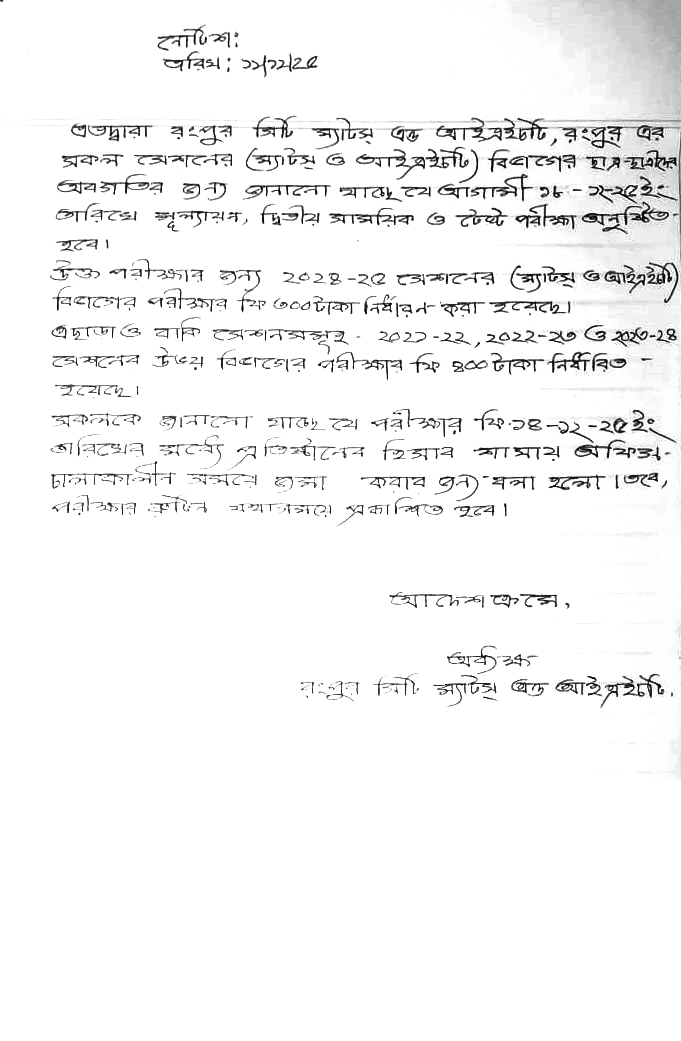 নোটিশ:
তারিখ: ১১/১২/২৫
এতদ্বারা রংপুর সিটি ম্যাটস্ এন্ড আইএইচটি, রংপুর এর
সকল সেশনের (ম্যাটস্ ও আইএইচটি) বিভাগের ছাত্র-ছাত্রীদের
অবগতির জন্য জানানো যাচ্ছে যে আগামী ১৮ - ১২-২৫ইং
তারিখে মূল্যায়ন, দ্বিতীয় সাময়িক ও টেস্ট পরীক্ষা অনুষ্ঠিত-
হবে।
উক্ত পরীক্ষার জন্য ২০২৪-২৫ সেশনের (ম্যাটস্ ও আইএইচটি)
বিভাগের পরীক্ষার ফি ৩০০ টাকা নির্ধারন করা হয়েছে।
এছাড়াও বাকি সেশনসমূহ - ২০২১-২২, ২০২২-২৩ ও ২০২৩-২৪
সেশনের উভয় বিভাগের পরীক্ষার ফি ৪০০ টাকা নির্ধারিত -
হয়েছে।
সকলকে জানানো যাচ্ছে যে পরীক্ষার ফি ১৪-১২-২৫ইং
তারিখের মধ্যে প্রতিষ্ঠানের হিসাব শাখায় অফিস-
চলাকালীন সময়ে জমা করার জন্য বলা হলো। তবে,
পরীক্ষার রুটিন যথাসময়ে প্রকাশিত হবে।
আদেশক্রমে,
অধ্যক্ষ
রংপুর সিটি ম্যাটস্ এন্ড আইএইচটি.